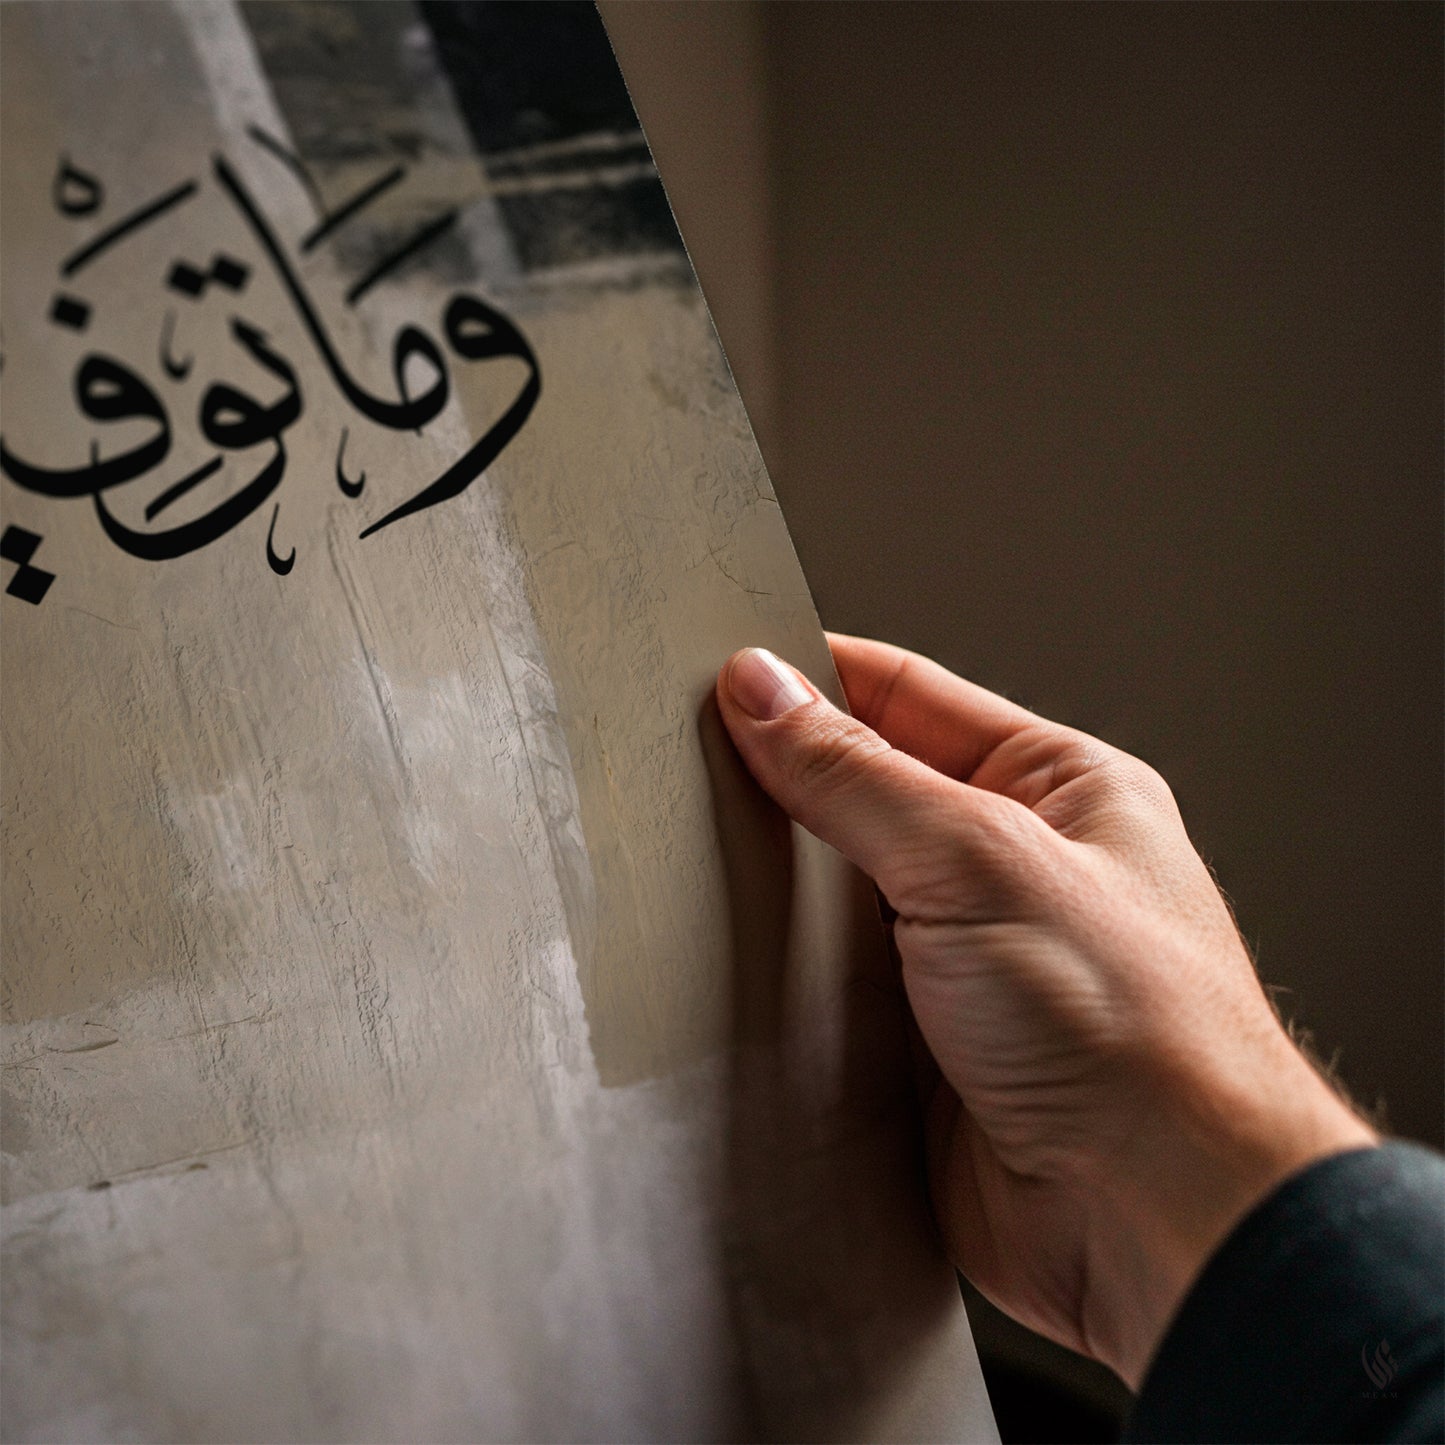 وَمَا تَوْفِي
MEAM